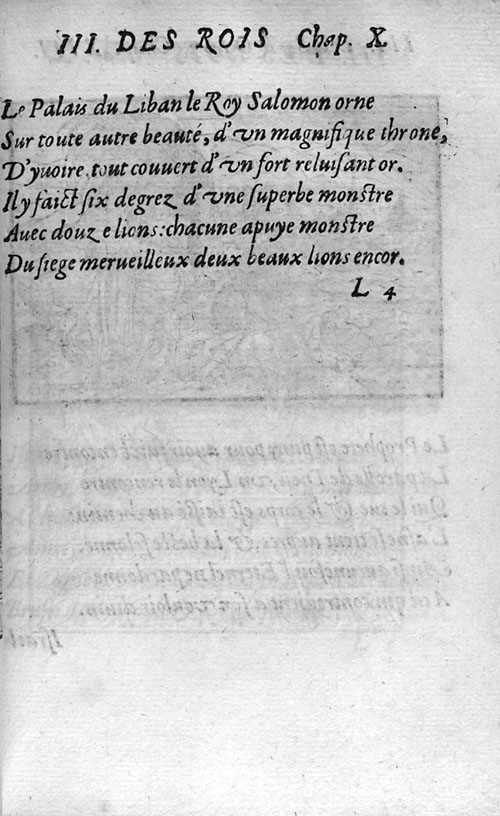 III. DES ROIS Chap. X
Le Palais du Liban le Roy Salomon orne
Sur toute autre beauté, d'vn magnifique throne,
D'yuoire, tout couuert d'vn fort reluiſant or.
Il y faict ſix degrez d'vne ſuperbe monſtre
Auec douze lions: chacune apuye monſtre
Du ſiege merueilleux deux beaux lions encor.
L 4